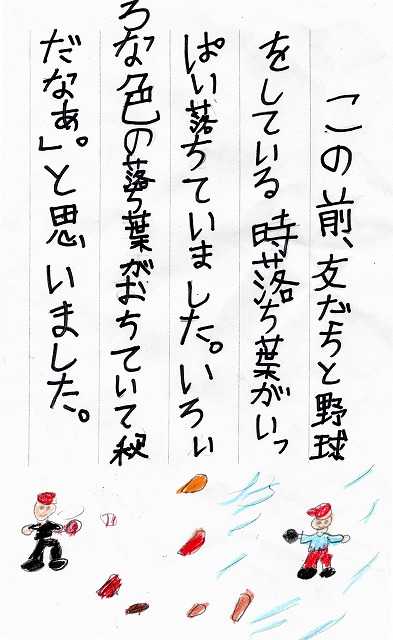 この前、友だちと野球
をしている時落ち葉がいっ
ぱい落ちていました。いろい
ろな色の落ち葉がおちていて秋
だなぁ」。と思いました。